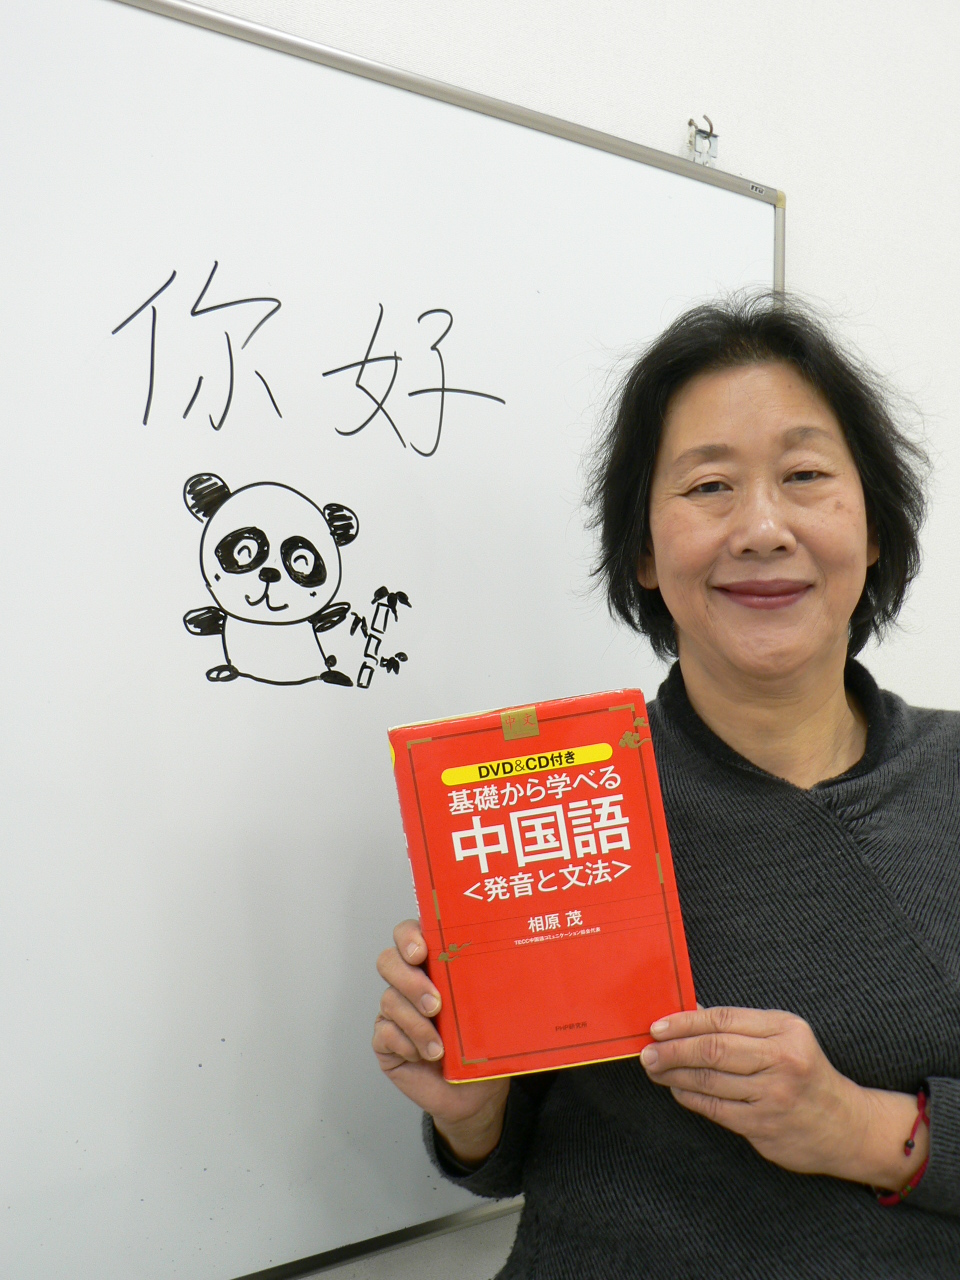 你好
中文
DVD&CD付き
基礎から学べる
中国語
<発音と文法>
相原 茂
TECC中国語コミュニケーション協会代表
PHP研究所